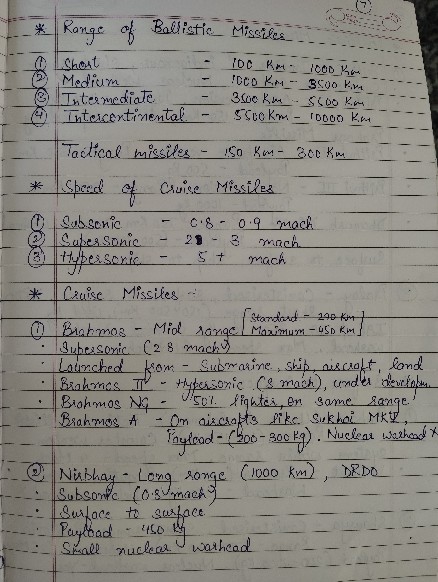 7
* Range of Ballistic Missiles
① Short - 100 Km - 1000 Km
② Medium - 1000 Km - 3500 Km
③ Intermediate - 3500 Km - 5500 Km
④ Intercontinental - 5500 Km - 10000 Km
Tactical missiles - 150 Km - 300 Km
* Speed of Cruise Missiles
① Subsonic - 0.8 - 0.9 mach
② Supersonic - 2 - 3 mach
③ Hypersonic - 5 + mach
* Cruise Missiles -
① Brahmos - Mid range [Standard - 290 Km
Maximum - 450 Km]
· Supersonic (2.8 mach)
· Launched from - Submarine, ship, aircraft, land
· Brahmos II - Hypersonic (8 mach), under developm
· Brahmos NG - 50% lighter, on same range
· Brahmos A - On aircrafts like Sukhoi
Payload - (200-300 kg). Nuclear warhead ×
② Nirbhay - Long range (1000 Km), DRDO
· Subsonic (0.8 mach)
· Surface to surface
· Payload - 450 kg
· Small nuclear warhead